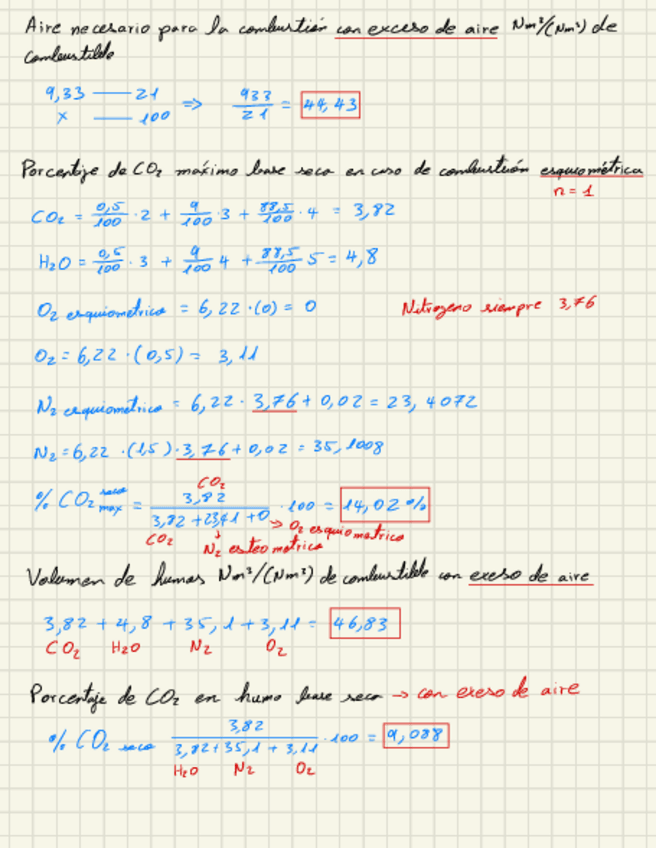 Aire necesario para la combustión con exceso de aire Nm³/(Nm³) de
combustible
9,33 — 21
x — 100
⇒ 933/21 = 44,43
Porcentaje de CO₂ máximo base seca en caso de combustión esquiométrica
n = 1
CO₂ = 0,5/100 · 2 + 9/100 · 3 + 88,5/100 · 4 = 3,82
H₂O = 0,5/100 · 3 + 9/100 4 + 88,5/100 5 = 4,8
O₂ esquiometrica = 6,22 · (0) = 0
Nitrogeno siempre 3,76
O₂ = 6,22 · (0,5) = 3,11
N₂ esquiométrica = 6,22 · 3,76 + 0,02 = 23,4072
N₂ = 6,22 · (1,5) · 3,76 + 0,02 = 35,1008
CO₂
% CO₂ seca max = 3,82 / 3,82 + 23,41 + 0 · 100 = 14,02 %
CO₂
→ O₂ esquiometrica
↓ N₂ esteometrica
Volumen de humos Nm³/(Nm³) de combustible con exeso de aire
3,82 + 4,8 + 35,1 + 3,11 = 46,83
CO₂ H₂O N₂ O₂
Porcentaje de CO₂ en humo base seca → con exeso de aire
% CO₂ seca 3,82 / 3,82 + 35,1 + 3,11 · 100 = 9,088
H₂O N₂ O₂